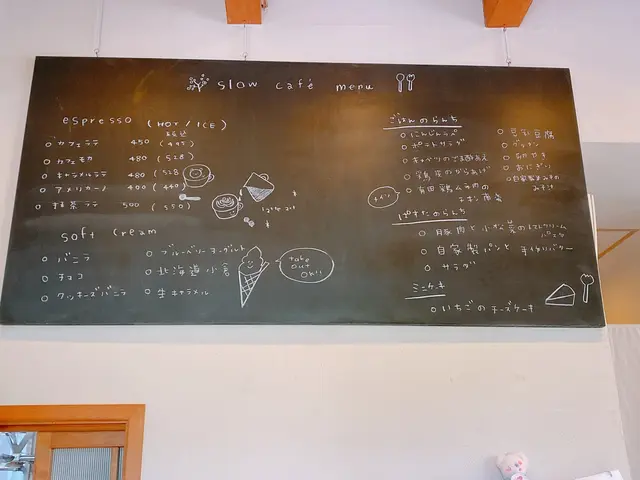 slow café menu
espresso (HOT / ICE)
税込
カフェラテ 450 (495)
カフェモカ 480 (528)
キャラメルラテ 480 (528
アメリカーノ 400 (440)
抹茶ラテ 500 (550)
soft cream
バニラ
チョコ
クッキーズバニラ
ブルーベリーヨーグルト
北海道小倉
生キャラメル
take
out
OK!!
ごはんのらんち
にんじんラペ
ポテトサラダ
キャベツのごま酢あえ
鶏皮のからあげ
メイン
有田鶏ムネ肉の
チキン南蛮
豆乳豆腐
おにぎり
自家製みその
みそ汁
ぱすたのらんち
豚肉と小松菜のトマトクリーム
パスタ
自家製パンと手作りバター
サラダ
ミニケーキ
いちごのチーズケーキ